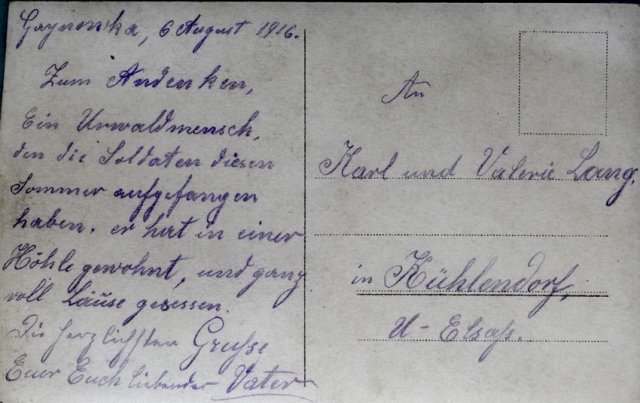 Gaynowka, 6 August 1916.
Zum Andenken,
Ein Urwaldmensch,
den die Soldaten diesen
Sommer aufgefangen
haben. er hat in einer
Höhle gewohnt, und ganz
voll Läuse gesessen.
Die herzlichsten Grusse
Euer Euch liebender Vater
An
Karl und Valerie Lang,
in Kühlendorf,
U-Elsaß.